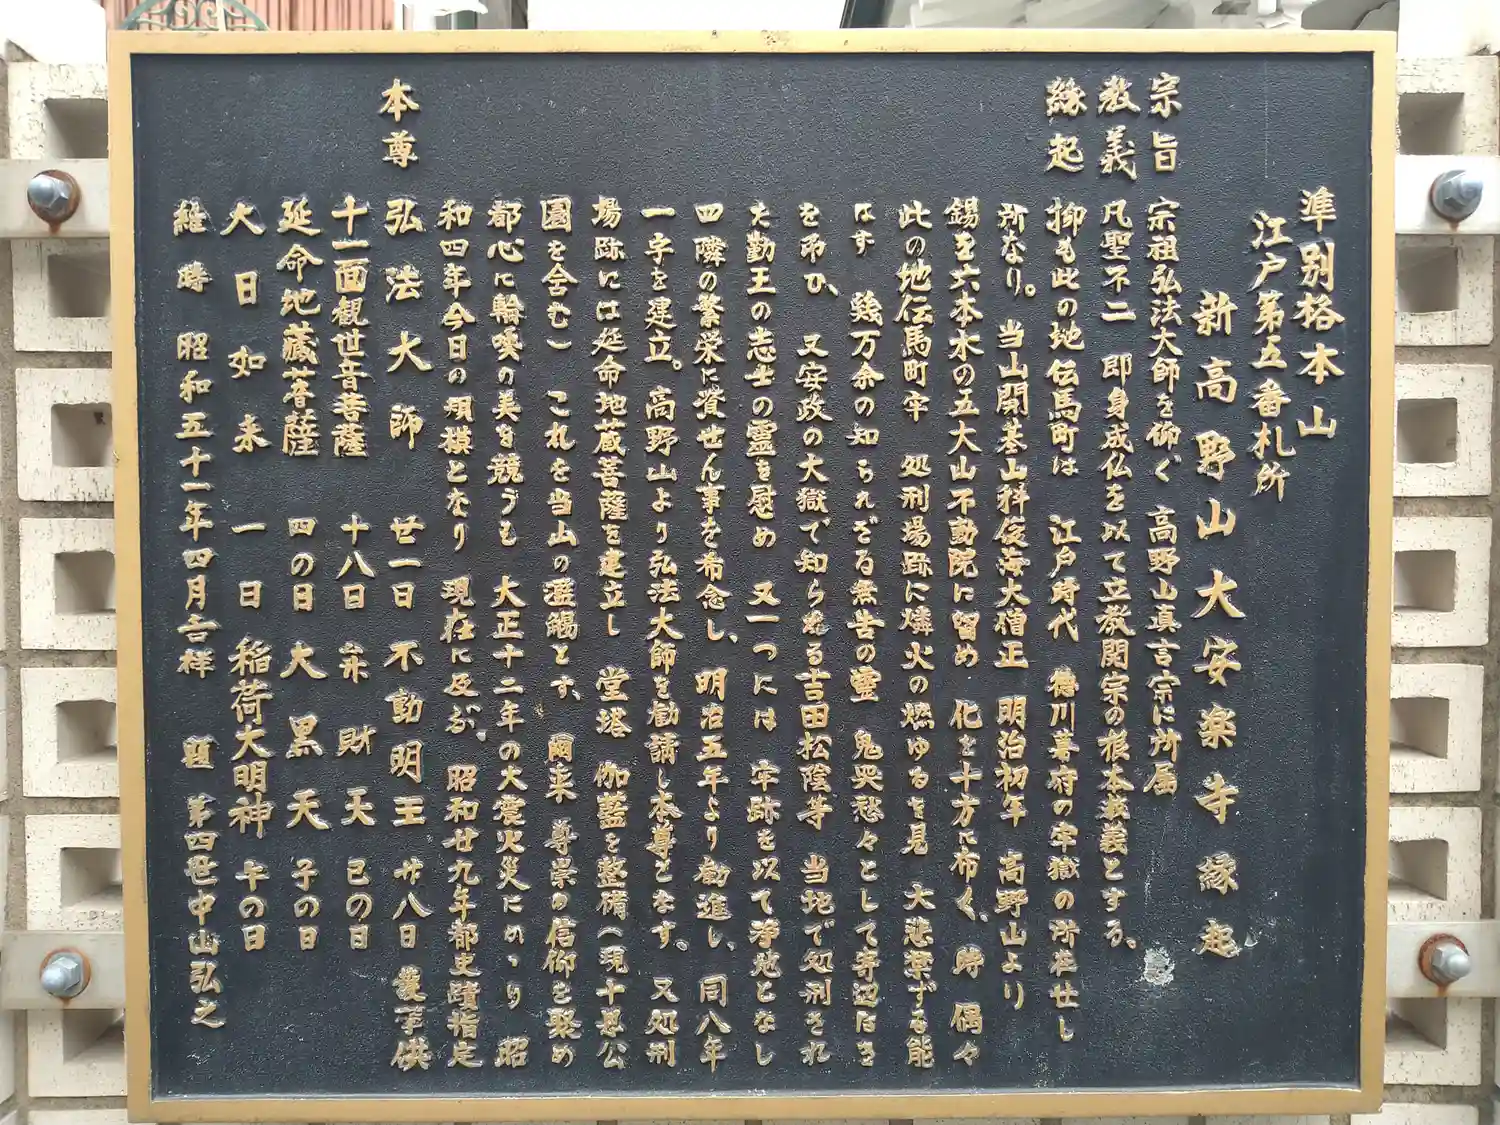 準別格本山
江戸第五番札所
新高野山大安楽寺縁起
宗旨 宗祖弘法大師を仰ぐ 高野山真言宗に所属
教義 凡聖不二 即身成仏を以て立教開宗の根本義とする。
縁起 抑も此の地伝馬町は 江戸時代 徳川幕府の牢獄の所在せし
所なり。 当山開基山科俊海大僧正 明治初年 高野山より
錫を六本木の五大山不動院に留め 化を十方に布く、時 偶々
此の地伝馬町牢 処刑場跡に燐火の燃ゆるを見 大悲禁ずる能
はず 幾万余の知られざる無告の霊 鬼哭愁々として寄辺なき
を弔ひ、 又安政の大獄で知らるる吉田松陰等 当地で処刑され
た勤王の志士の霊を慰め 又一つには 牢跡を以て浄地となし
四隣の繁栄に資せん事を希念し、明治五年より勧進し、同八年
一宇を建立。高野山より弘法大師を勧請し本尊となす。 又処刑
場跡には延命地蔵菩薩を建立し 堂塔 伽藍を整備(現十思公
園を含む) これを当山の濫觴とす。 爾来 尊崇の信仰を聚め
都心に輪奐の美を競うも 大正十二年の大震火災にあゝり 昭
和四年今日の規模となり 現在に及ぶ。 昭和廿九年都史蹟指定
本尊 弘法大師 廿一日 不動明王 廿八日 護摩供
十一面観世音菩薩 十八日 弁財天 巳の日
延命地蔵菩薩 四の日 大黒天 子の日
大日如来 一日 稲荷大明神 午の日
維時 昭和五十一年四月吉祥 第四世中山弘之